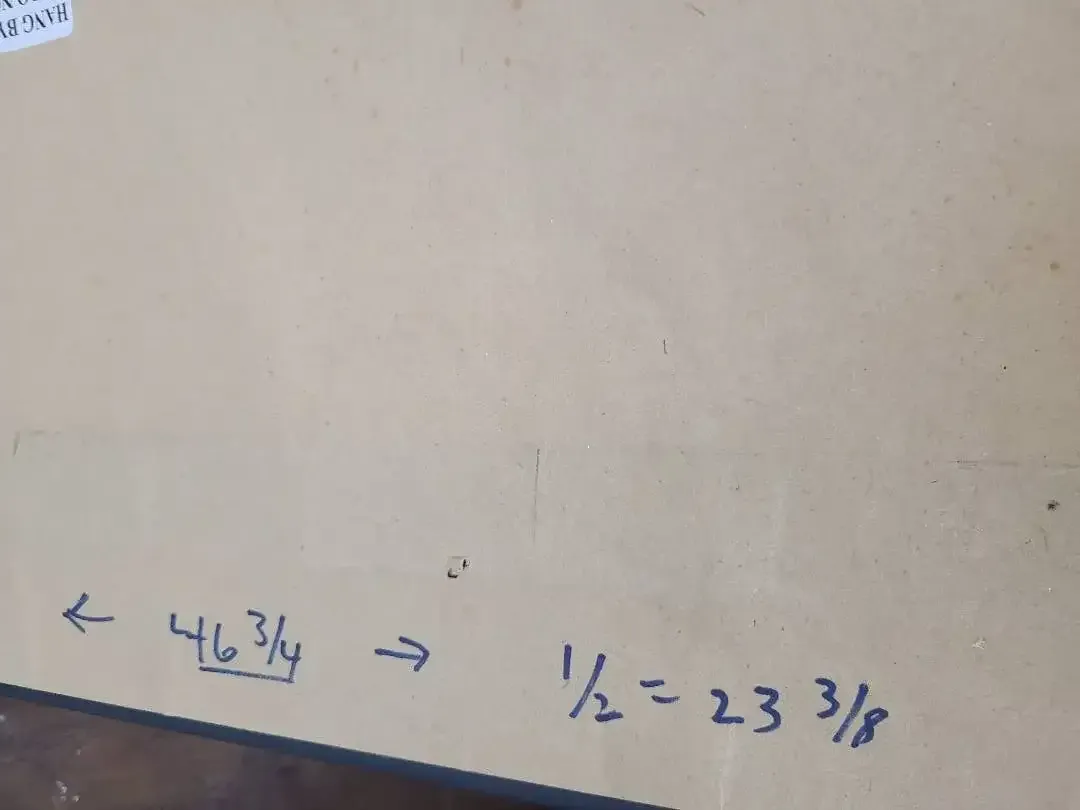 HANG BY
← 46 3/4 → 1/2 = 23 3/8